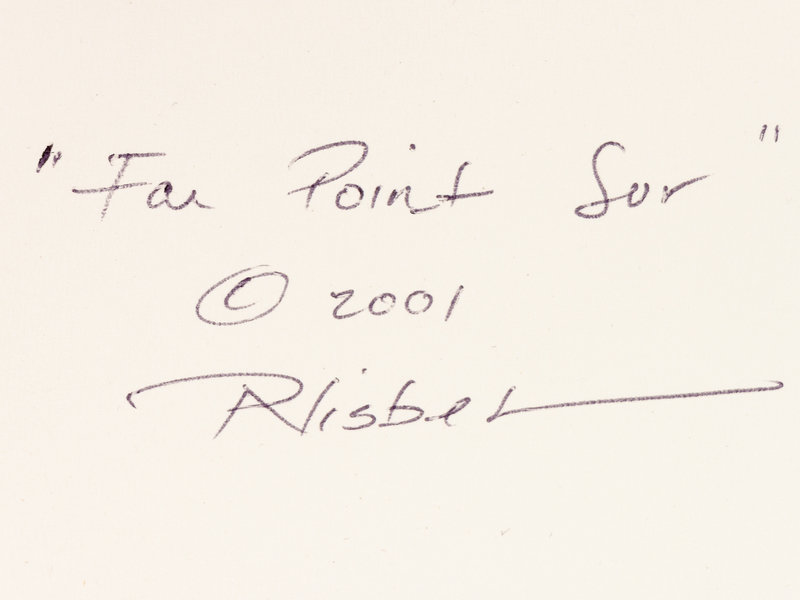 "Far Point Sur"
© 2001
PNisbet